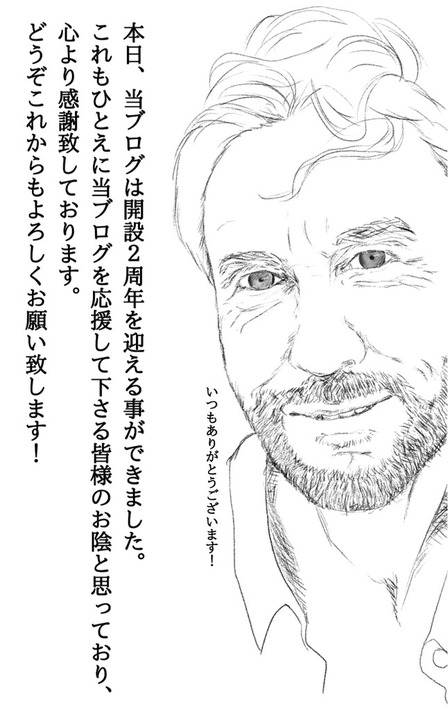 本日、当ブログは開設２周年を迎える事ができました。
これもひとえに当ブログを応援して下さる皆様のお陰と思っており、
心より感謝致しております。
どうぞこれからもよろしくお願い致します！
いつもありがとうございます！